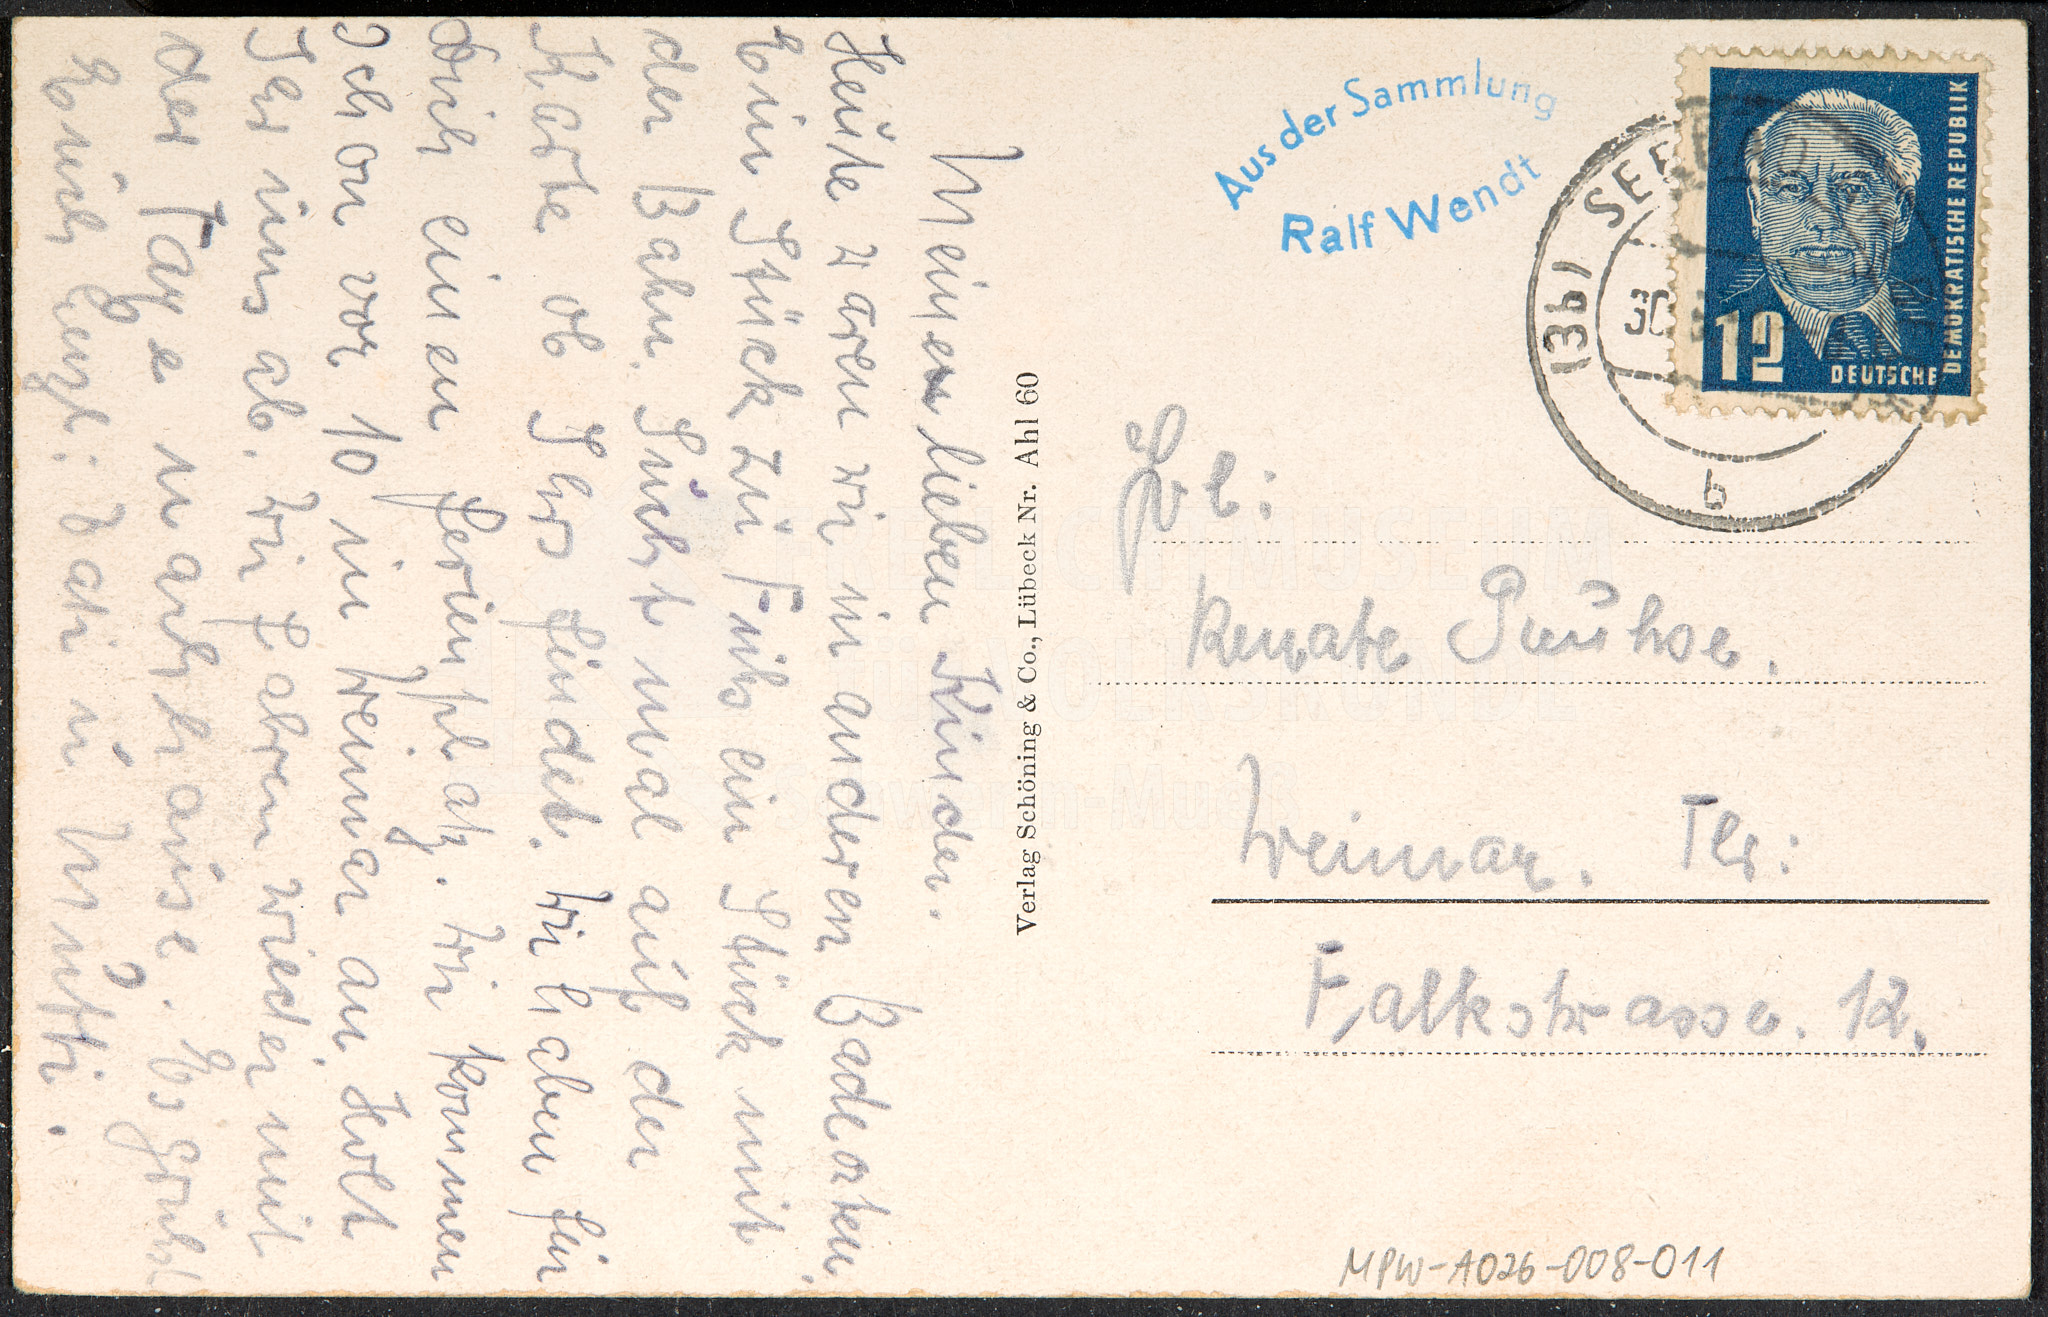 Meinen lieben Kinder.
Heute waren wir in anderen Badeorten.
Ein Stück zu Fuß ein Stück mit
der Bahn. Sucht mal auf der
Karte ob Ihrs findet. Wir haben für
Dich einen Ferienplatz. Wir kommen
schon vor 10 in Weimar an Holt
Ihr uns ab. Wir fahren wieder mit
der Tage nachhause. Es grüßt
Euch herzl: Vati u Mutti.
Verlag Schöning & Co., Lübeck Nr. Ahl 60
Aus der Sammlung
Ralf Wendt
(3b) SEE
30
b
12
DEUTSCHE
DEMOKRATISCHE REPUBLIK
Renate
Weimar. Thr:
Falkstrasse. 12.
MPW-A026-008-011
FREILICHTMUSEUM
für VOLKSKUNDE
Schwerin-Mueß